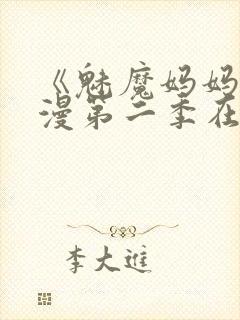 《魅魔妈妈
漫第二季在
李大進